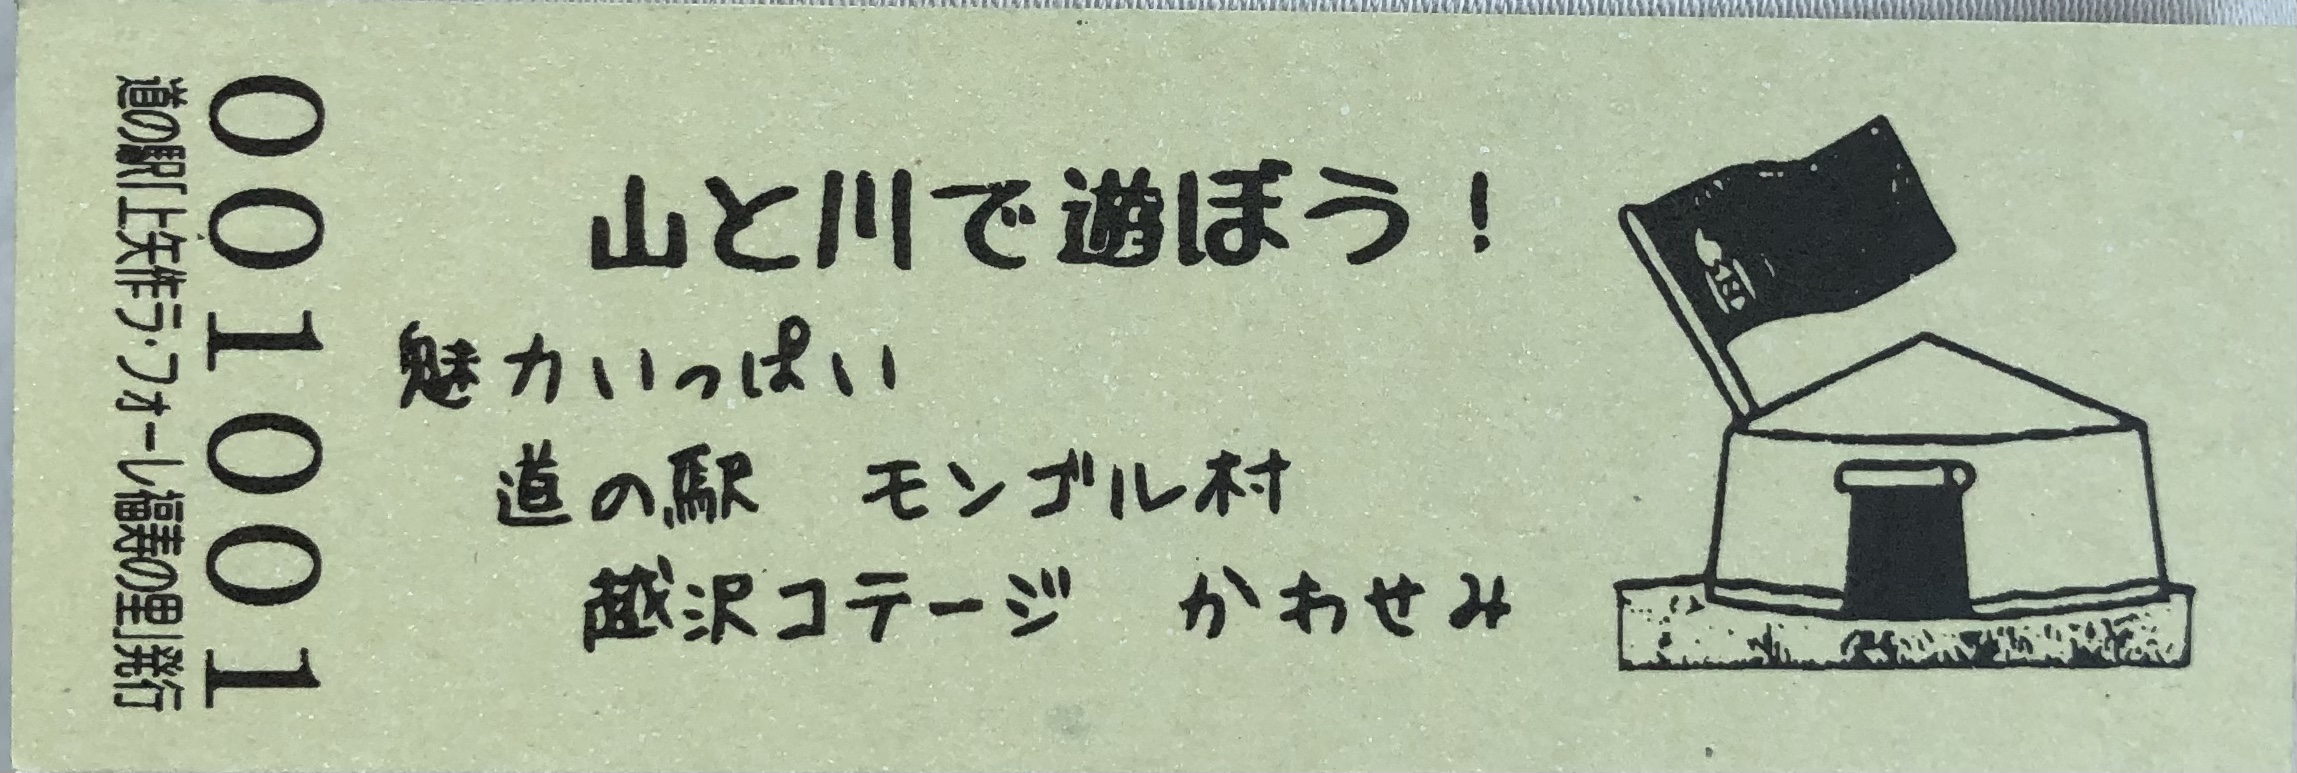 山と川で遊ぼう！
魅力いっぱい
道の駅　モンゴル村
越沢コテージ　かわせみ
001001
道の駅「上矢作ラ・フォーレ福寿の里」発行